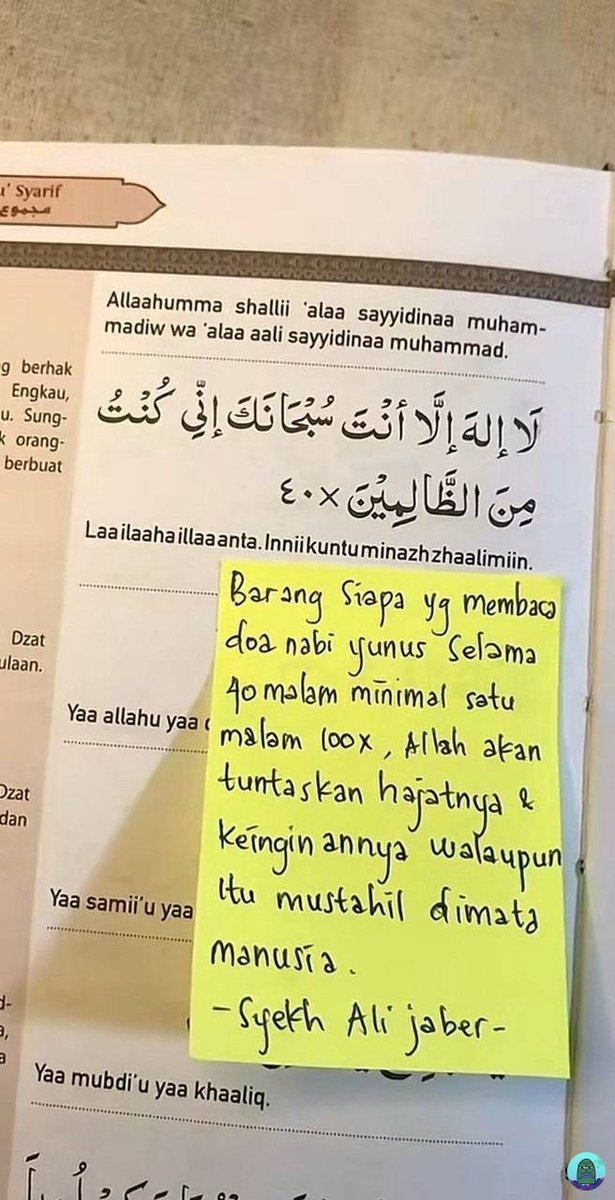 u' Syarif
مجموع
Allaahumma shallii 'alaa sayyidinaa muham-
madiw wa 'alaa aali sayyidinaa muhammad.
g berhak
Engkau,
u. Sung-
k orang-
berbuat
لَا إِلهَ إِلَّا أَنْتَ سُبْحَانَكَ إِنِّي كُنْتُ
مِنَ الظَّالِمِيْنَ ×٤٠
Laa ilaaha illaa anta. Innii kuntu minazh zhaalimiin.
Barang Siapa yg membaca
doa nabi yunus Selama
40 malam minimal satu
malam 100x, Allah akan
tuntaskan hajatnya &
keinginannya walaupun
itu mustahil dimata
manusia.
-Syekh Ali jaber-
Dzat
ulaan.
Yaa allahu yaa
Dzat
dan
Yaa samii'u yaa
d-
a,
a
Yaa mubdi'u yaa khaaliq.